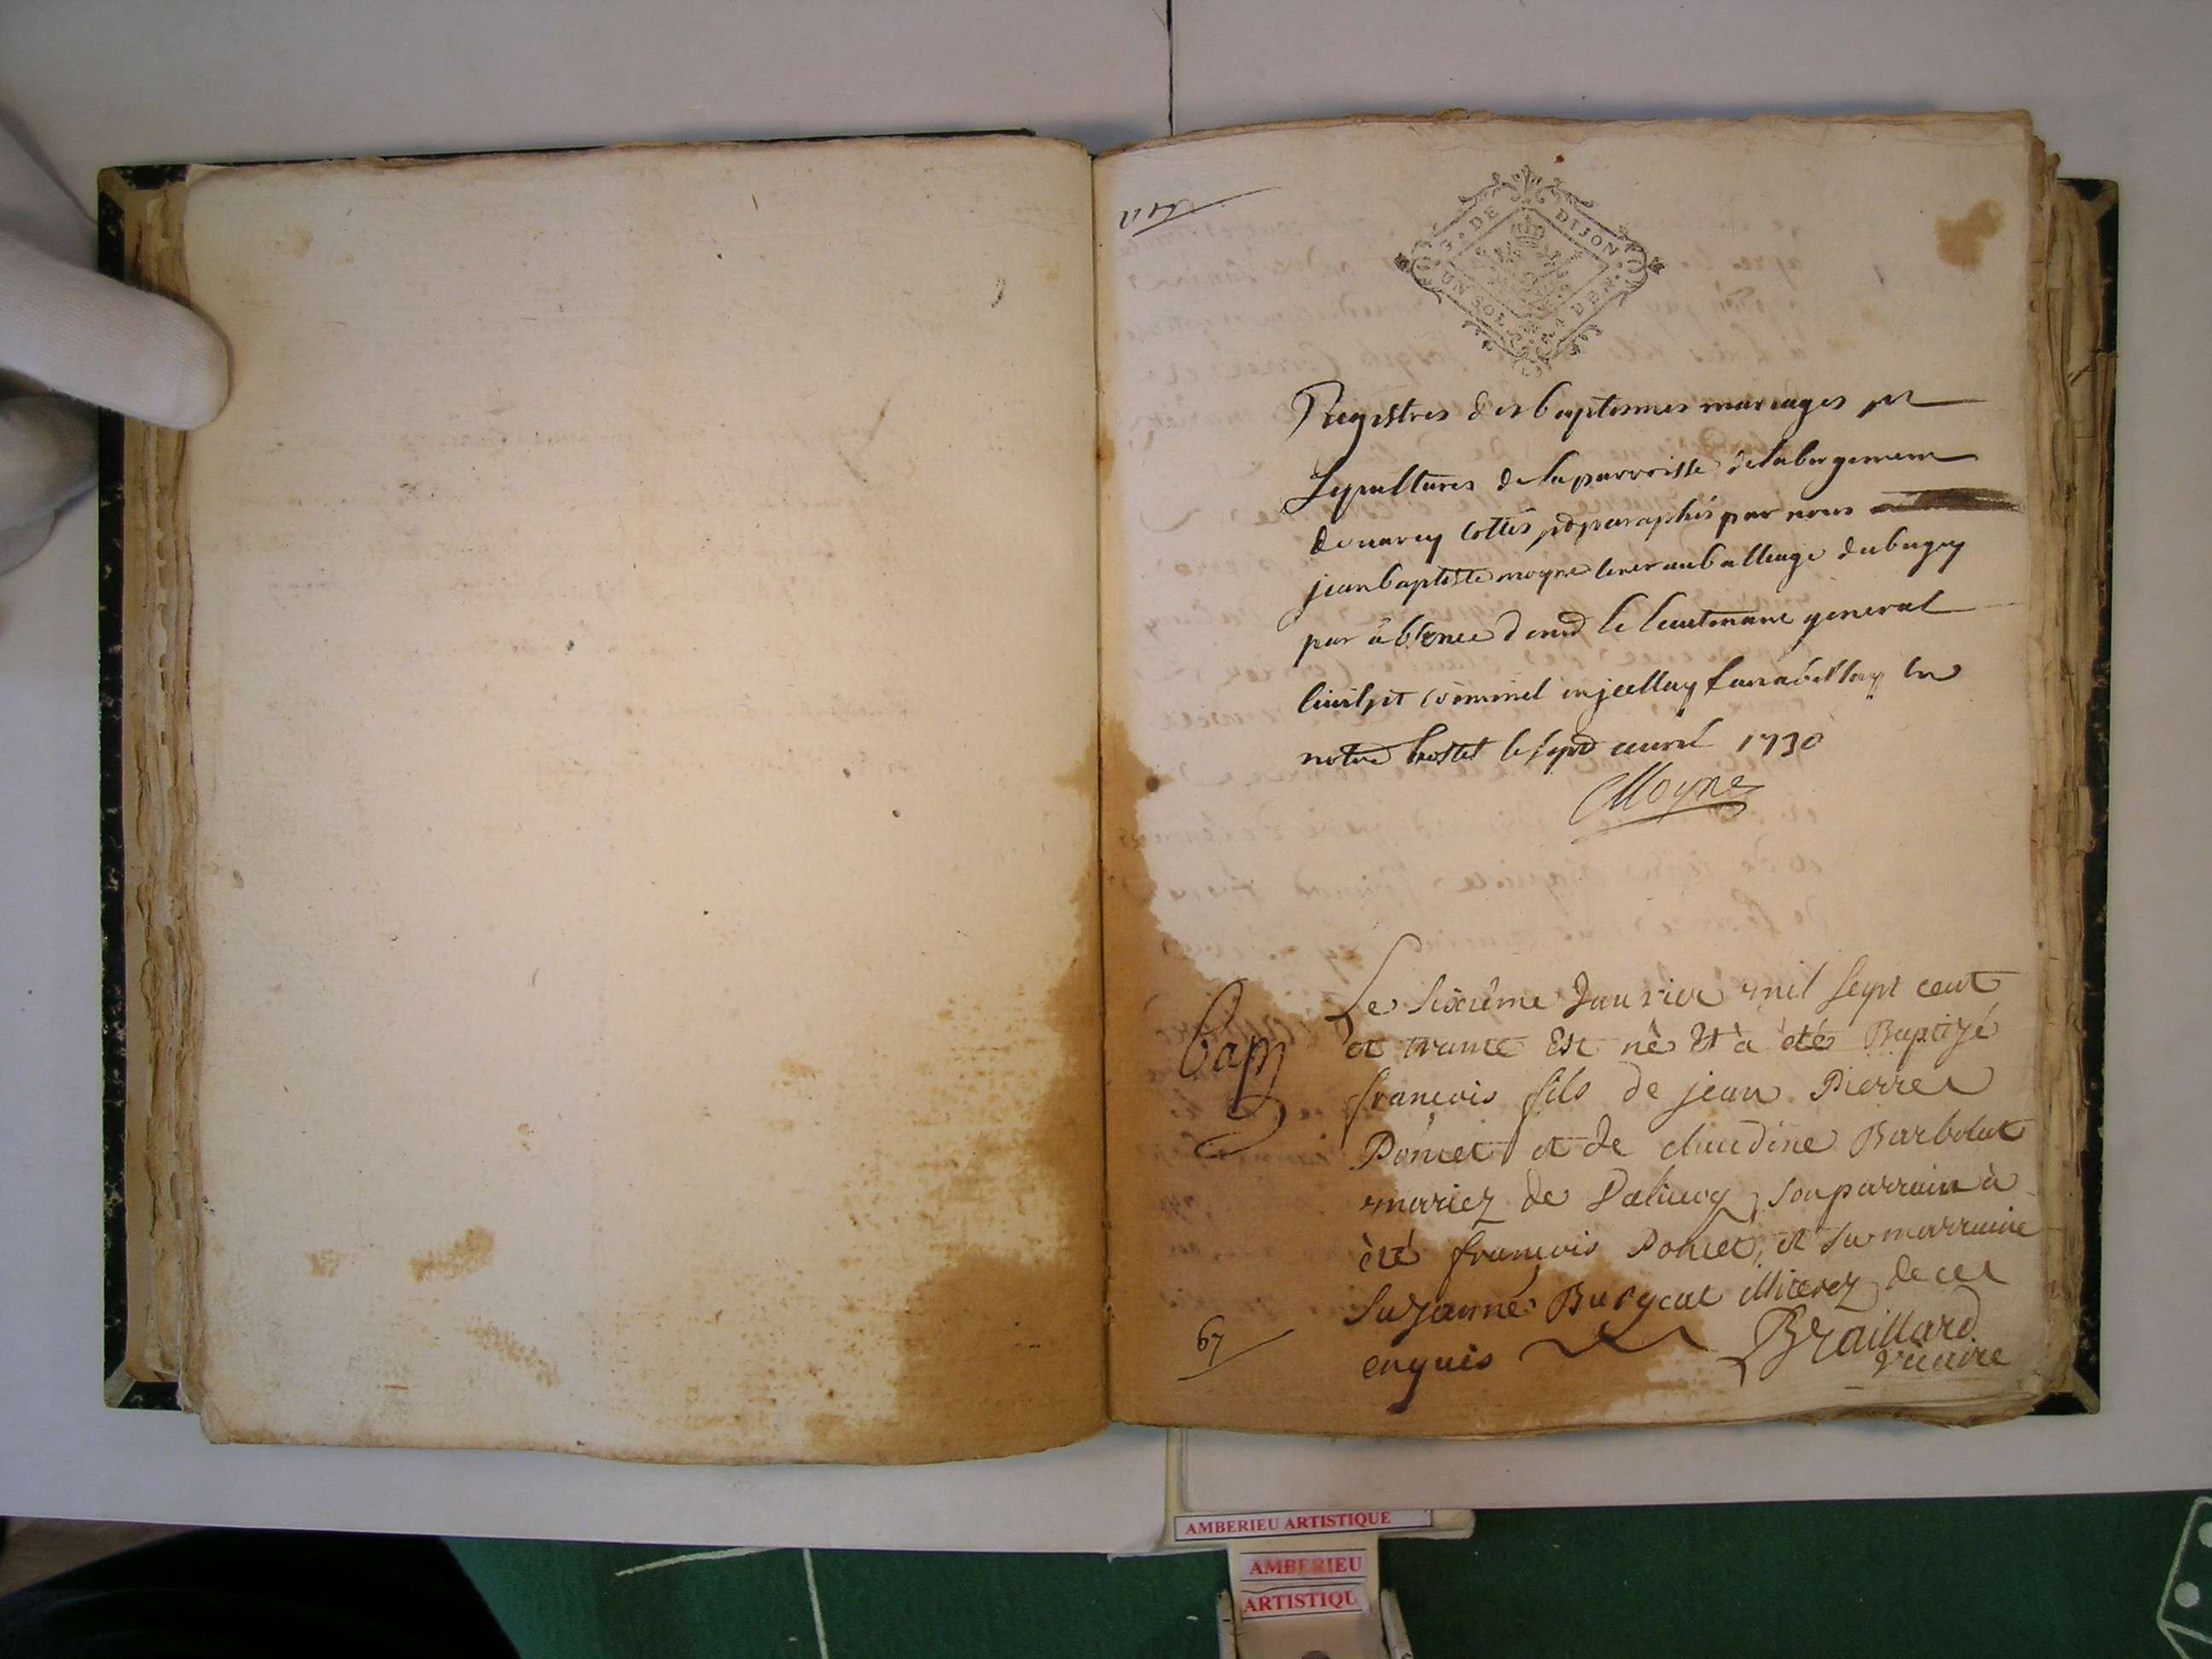 G. DE DIJON
UN SOL 4 DEN.
Registres des baptesmes mariages et
Sepultures de la parroisse de labergement
de varey cottés et paraphés par nous
jean baptiste moyne au balliage du bugey
par absence de le lieutenant general
civil et criminel
notre hostel le sept avril 1730
Moyne
Bap
Le Sixième Janvier mil sept cent
et trante Est né Et à été Baptizé
francois fils de jean Pierre
Poncet et de claudine Barbolat
mariez de son parrain à
été francois Poncet, et sa marraine
Suzanne de ce
enquis
Braillard
vicaire
67
AMBERIEU ARTISTIQUE
AMBERIEU
ARTISTIQU